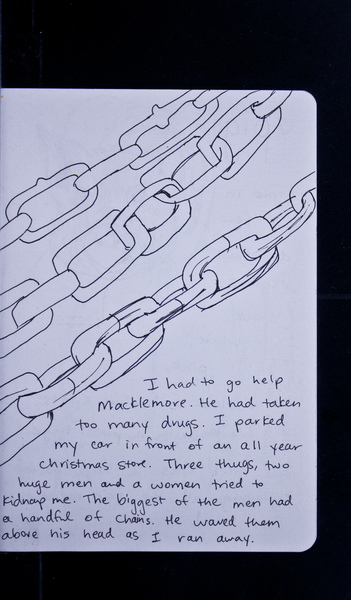 I had to go help
Macklemore. He had taken
too many drugs. I parked
my car in front of an all year
christmas store. Three thugs, two
huge men and a women tried to
kidnap me. The biggest of the men had
a handful of chains. He waved them
above his head as I ran away.